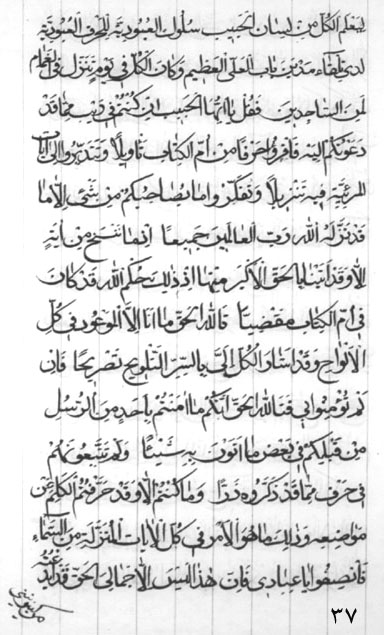 ليعلم الكل من لسان الحبيب سلوك العبودية للحرف العبودية
لدى تلقاء مدين باب العلى العظيم وكان الكل في يوم تنزل في الغمام
لمن الساجدين فقل يا ايها الحبيب ان كنتم في ريب مما قد
دعوتكم اليه فاقرؤا حرفا من ام الكتاب تاويلا وتدبروا الى ايات
المرئية فيه تنزيلا وتفكروا ما بصاحبكم من شئ الا ما
قد نزله الله رب العالمين جميعا انما ننسخ من اية
الا وقد اتينا بالحق الاكبر منها اذ ذلك حكم الله قد كان
في ام الكتاب مقضيا فالله الحق ما انا الا الموعود في كل
الالواح وقد اشار الكل الي بالسر التلويح تصريحا فان
لم تؤمنوا بي فتالله الحق انكم ما امنتم باحد من الرسل
من قبلكم في بعض ما اتون به شيئا ولم تتبعونهم
في حرف مما قد ذكروه ذرا وما كنتم الا وقد حرفتم الكلم عن
مواضعه وذلك ما هو الامر في كل الايات المنزلة من السماء
فانصفوا يا عبادي فان هذا ليس الاجمالي الحق قد
٣٧